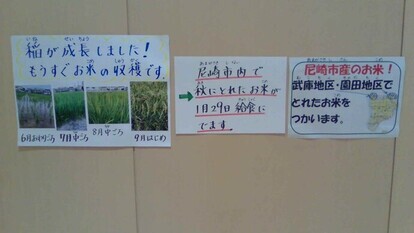 稲が成長しました！
もうすぐお米の収穫です。
6月おわりごろ
7月中ごろ
8月中ごろ
9月はじめ
尼崎市内で
秋にとれたお米が
1月29日給食に
でます
尼崎市産のお米！
武庫地区・園田地区で
とれたお米を
つかいます。